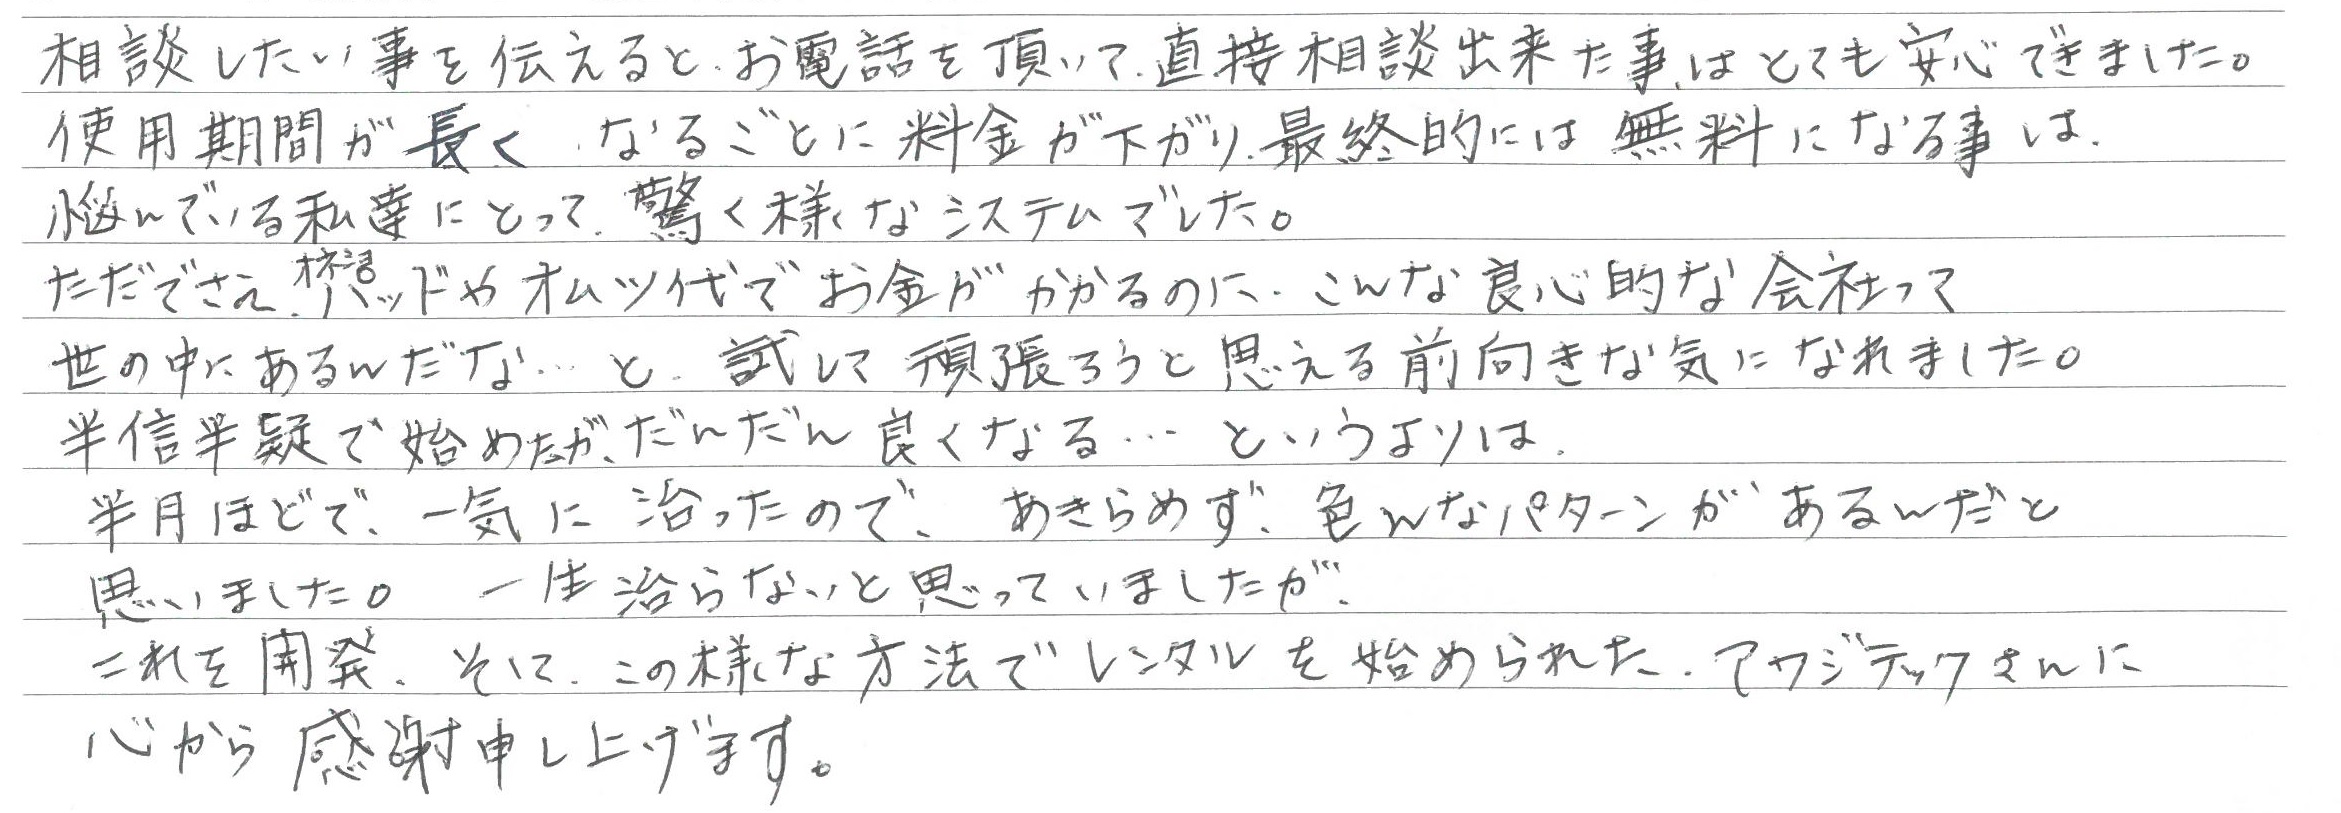 相談したい事を伝えると、お電話を頂いて、直接相談出来た事はとても安心できました。
使用期間が長く、なるごとに料金が下がり、最終的には無料になる事は、
悩んでいる私達にとって、驚く様なシステムでした。
ただでさえ、パッドやオムツ代でお金がかかるのに、こんな良心的な会社って
世の中にあるんだな…と、試して頑張ろうと思える前向きな気になれました。
半信半疑で始めたが、だんだん良くなる…というよりは、
半月ほどで、一気に治ったので、あきらめず、色んなパターンがあるんだと
思いました。一生治らないと思っていましたが、
これを開発、そして、この様な方法でレンタルを始められた、アワジテックさんに
心から感謝申し上げます。